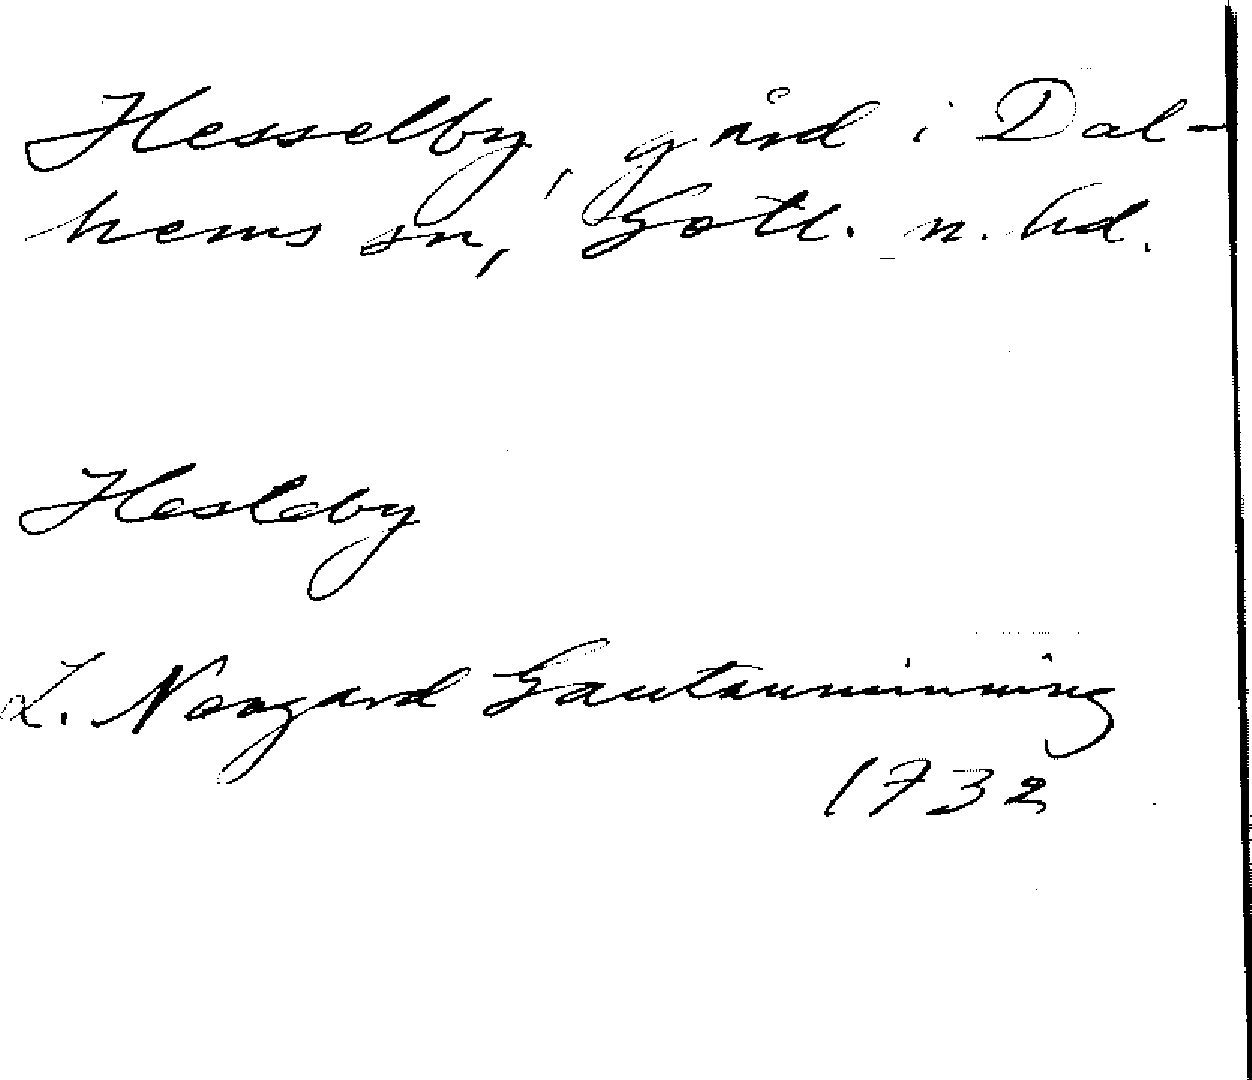 Hesselby, gård i Dal-
hems sn, Gotl. n. hd.
Hesleby
L. Neogard Gautauminning
1732